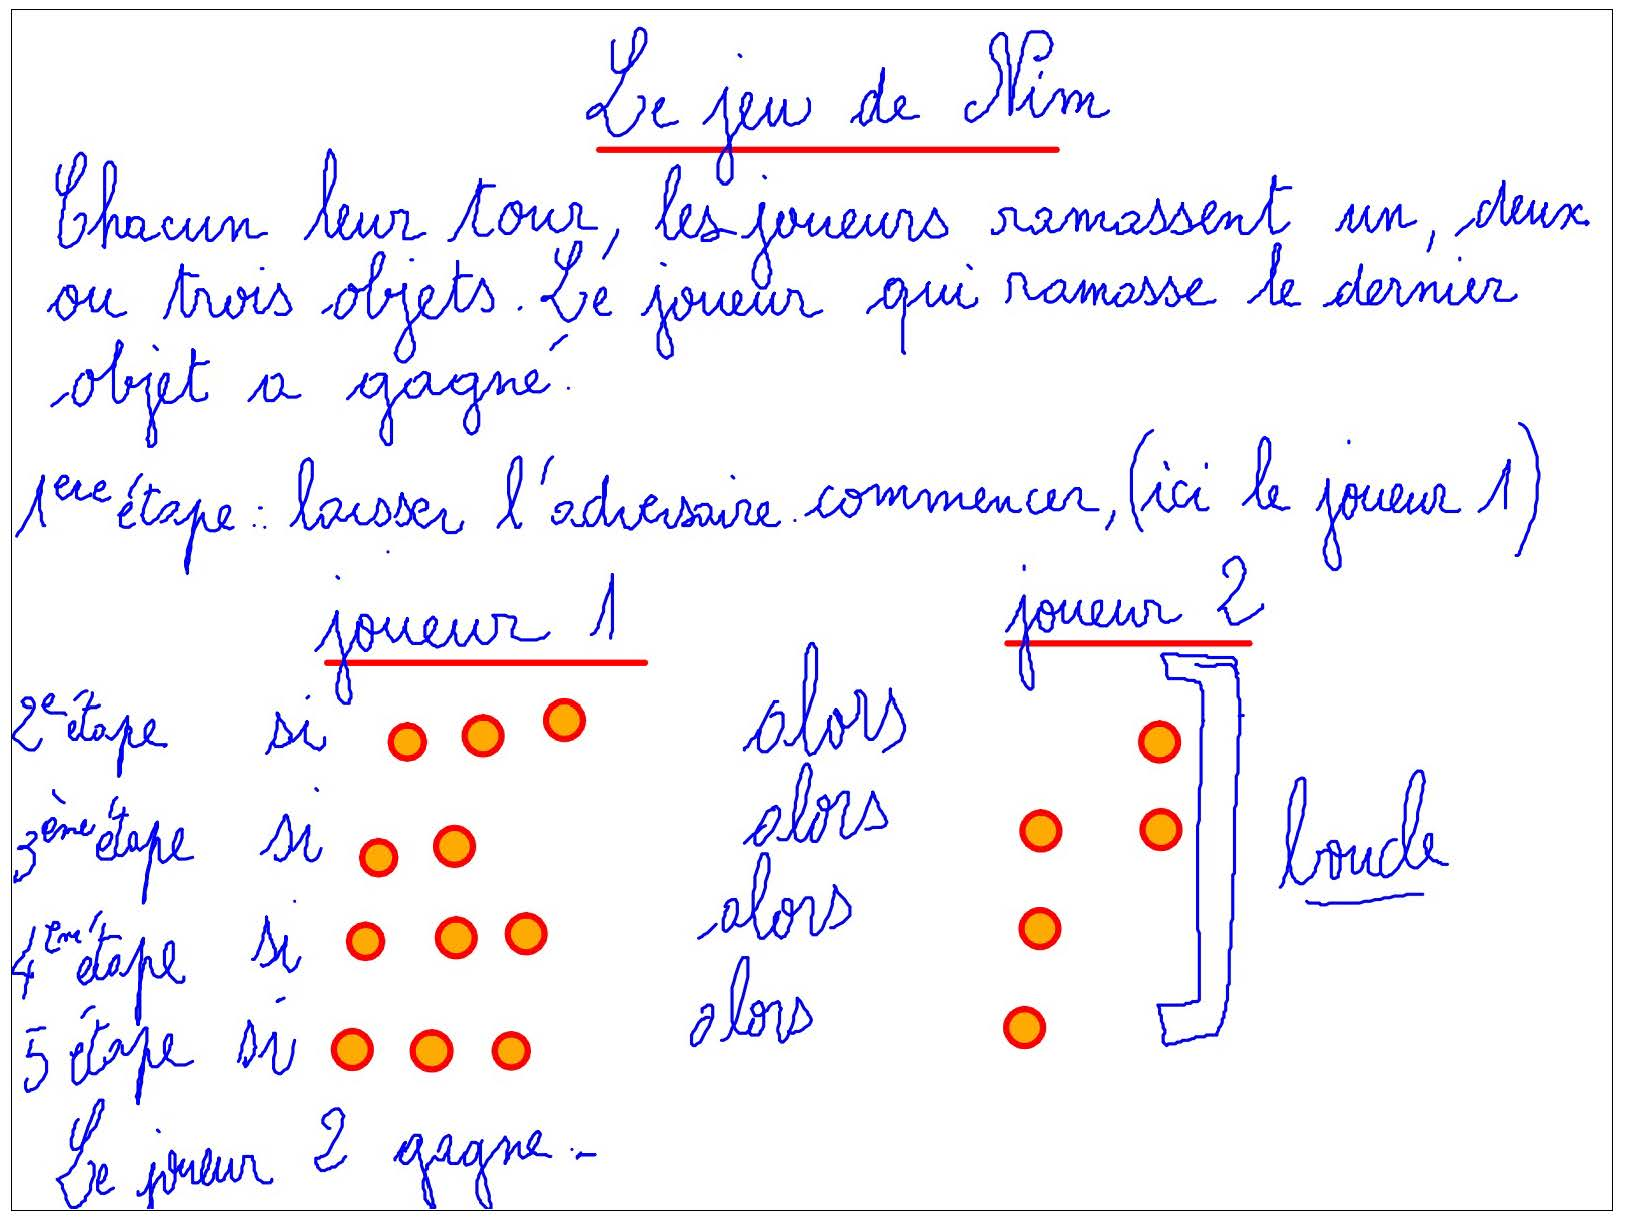 Le jeu de Nim
Chacun leur tour, les joueurs ramassent un, deux
ou trois objets. Le joueur qui ramasse le dernier
objet a gagné.
1ere étape : laisser l'adversaire commencer, (ici le joueur 1)
joueur 1 joueur 2
2e étape si alors
3ème étape si alors
4ème étape si alors
boucle
5 étape si alors
Le joueur 2 gagne.